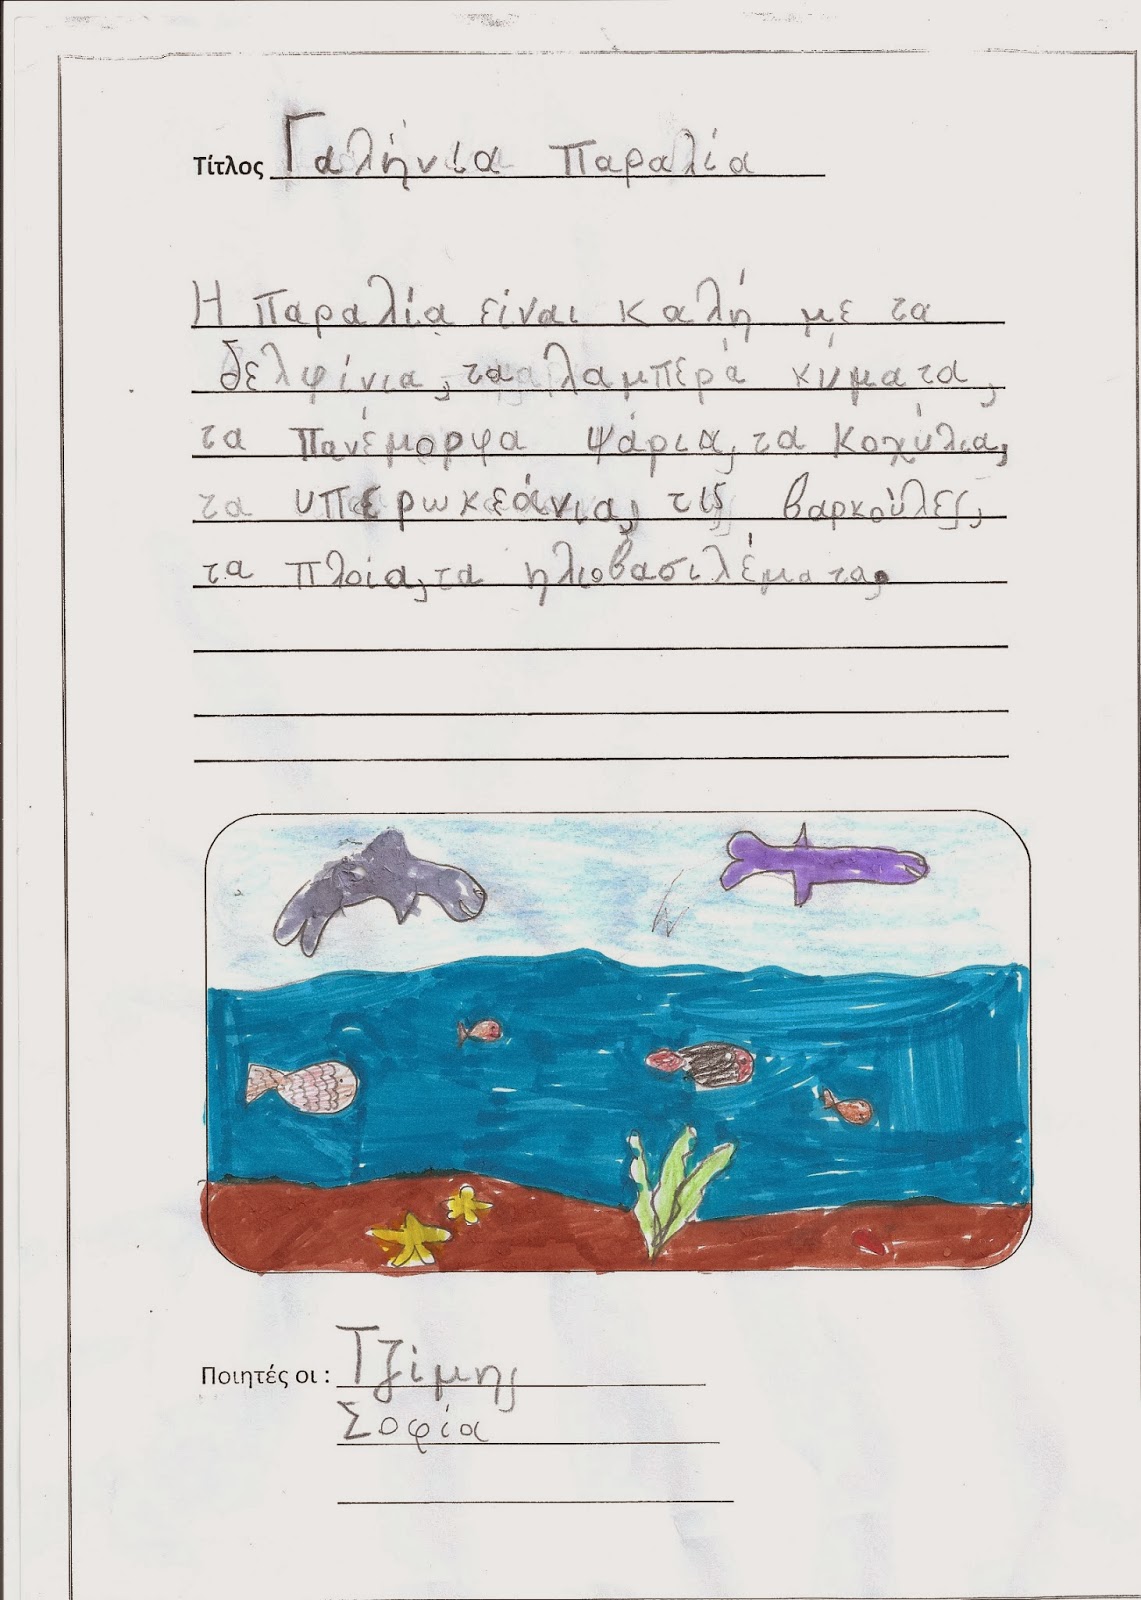 Τίτλος Γαλήνια Παραλία
Η παραλία είναι καλή με τα
δελφίνια, τα λαμπερά κύματα,
τα πανέμορφα ψάρια, τα κοχύλια,
τα υπερωκεάνια, τις βαρκούλες,
τα πλοία, τα ηλιοβασιλέματα.
Ποιητές οι : Τζίμης
Σοφία